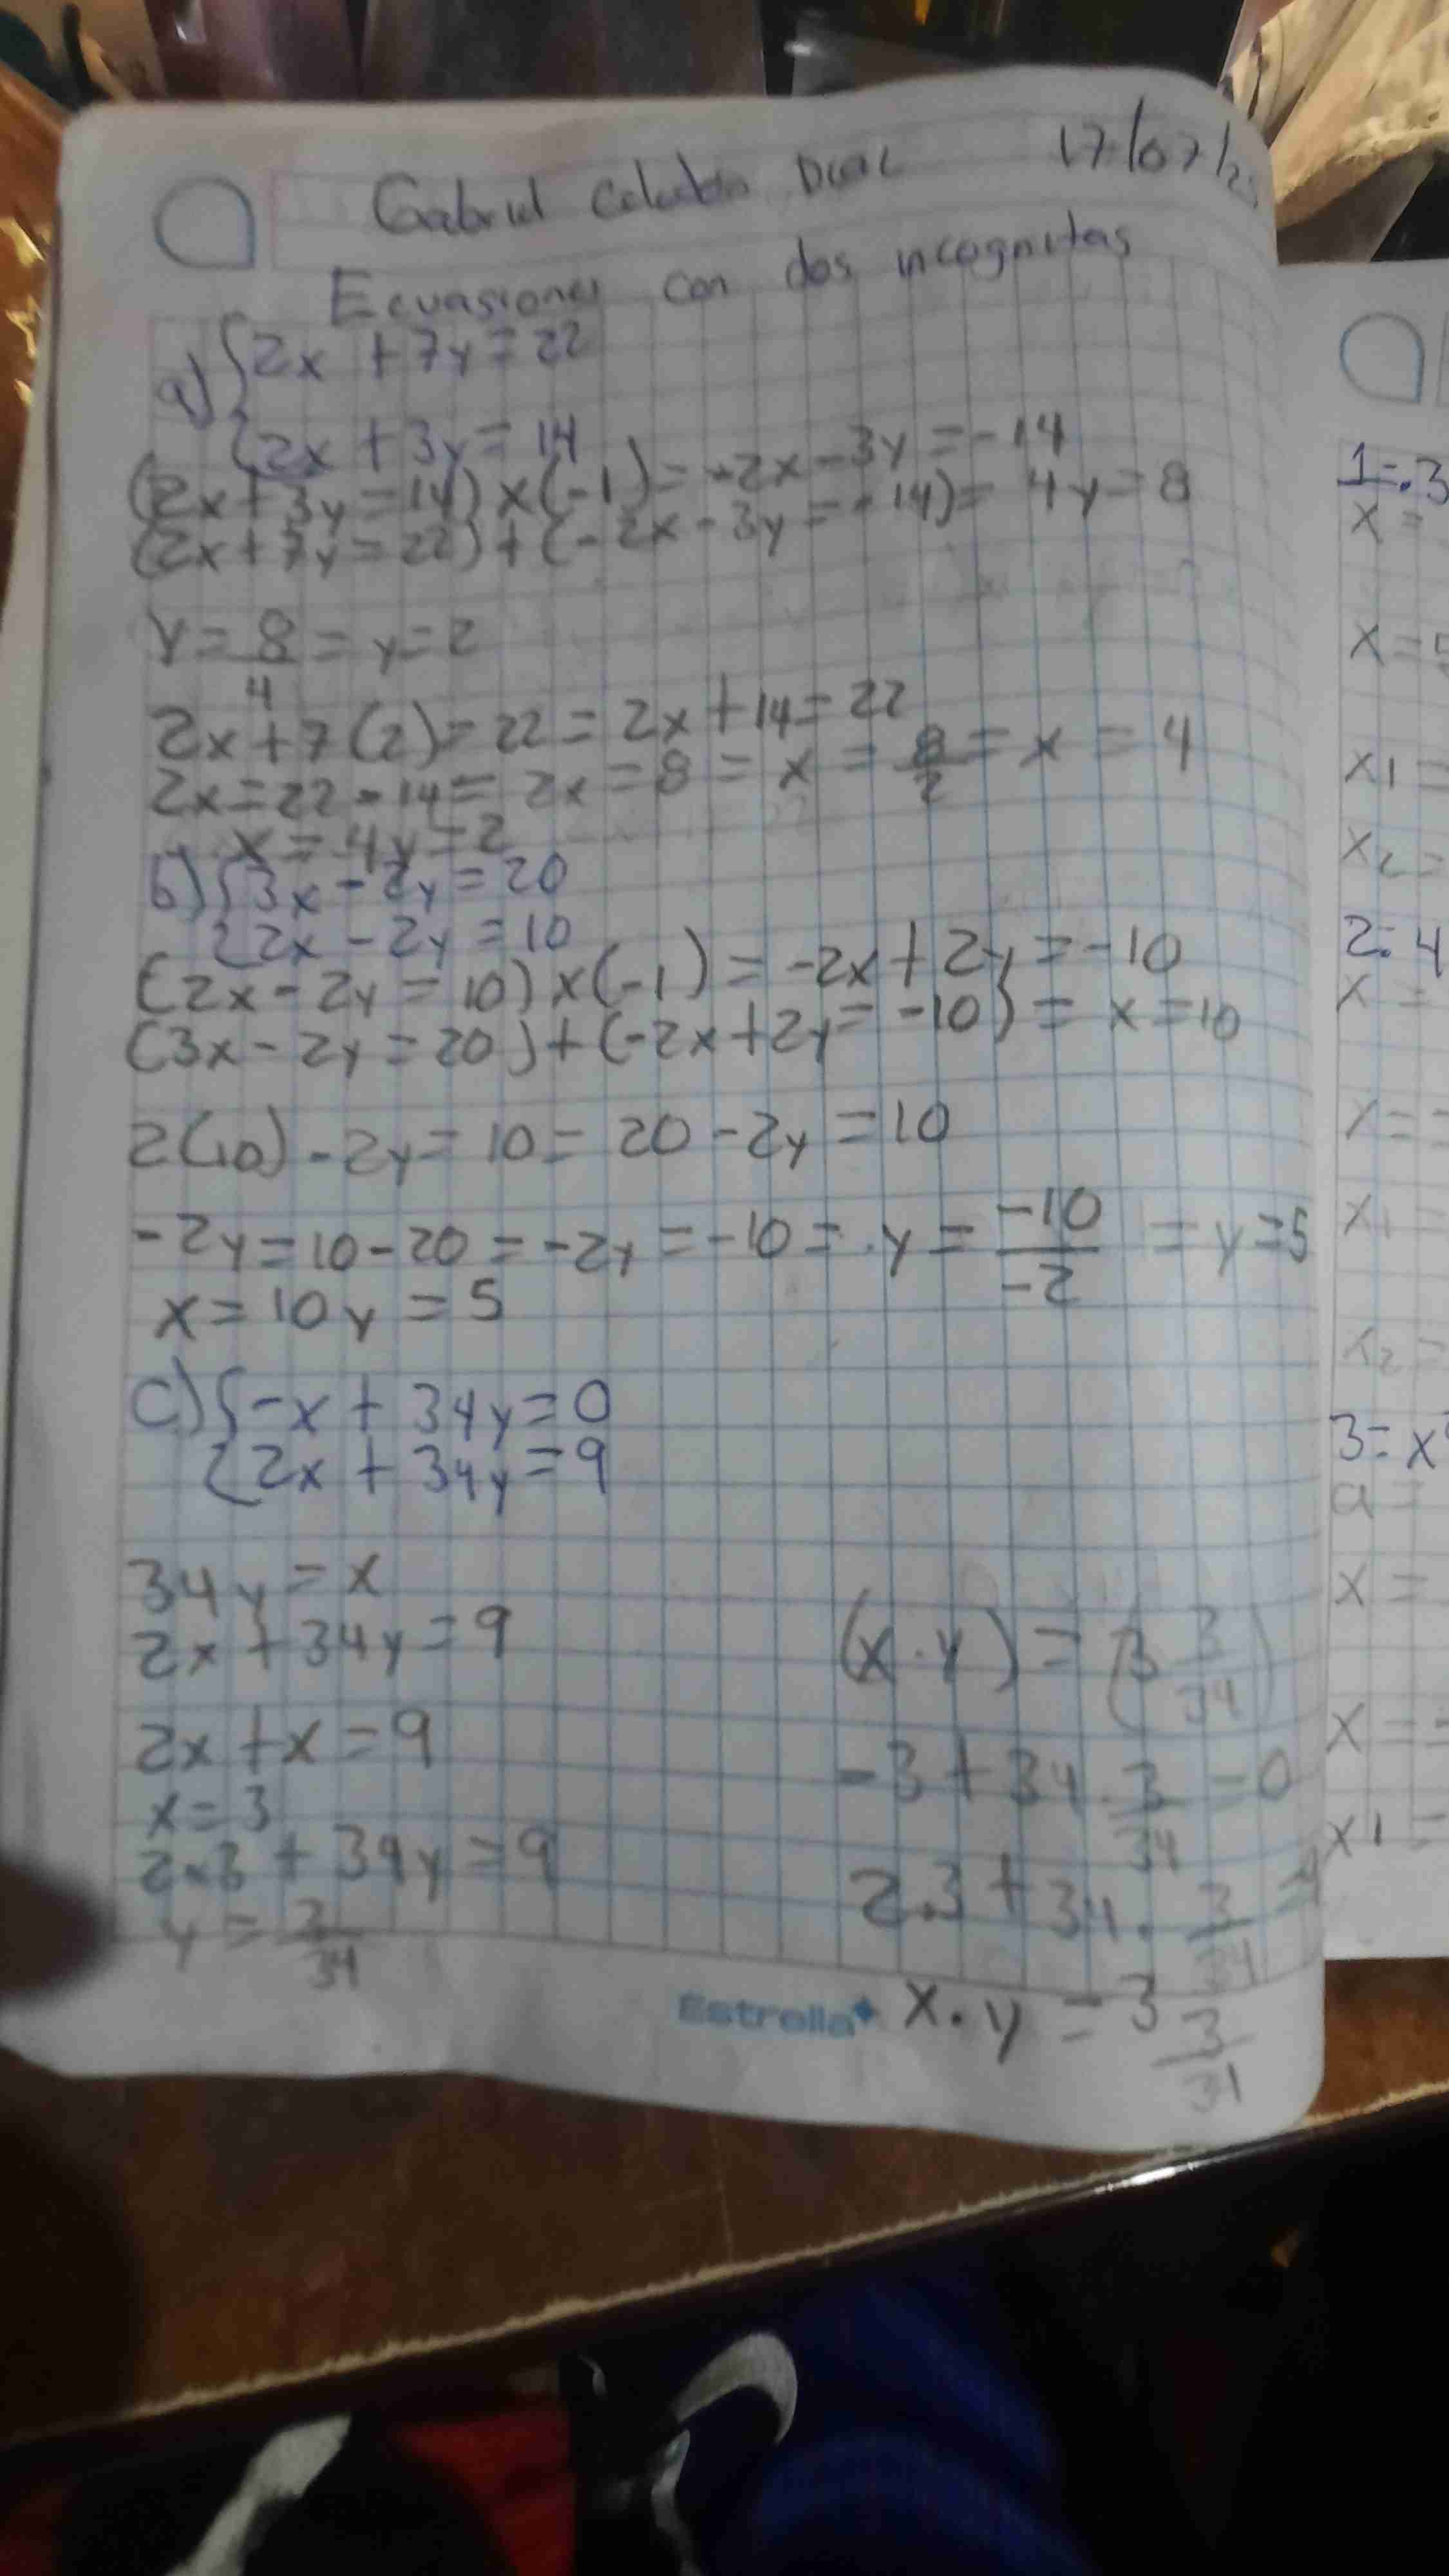 Gabriel 17/07/2
Ecuasiones con dos incognitas
a) {2x + 7y = 22
{2x + 3y = 14
(2x + 3y = 14) x (-1) = -2x - 3y = -14
(2x + 7y = 22) + (-2x - 3y = -14) = 4y = 8
y = 8/4 = y = 2
2x + 7(2) = 22 = 2x + 14 = 22
2x = 22 - 14 = 2x = 8 = x = 8/2 = x = 4
x = 4 y = 2
b) {3x - 2y = 20
{2x - 2y = 10
(2x - 2y = 10) x (-1) = -2x + 2y = -10
(3x - 2y = 20) + (-2x + 2y = -10) = x = 10
2(10) - 2y = 10 = 20 - 2y = 10
-2y = 10 - 20 = -2y = -10 = y = -10/-2 = y = 5
x = 10 y = 5
c) {-x + 34y = 0
{2x + 34y = 9
34y = x
2x + 34y = 9
2x + x = 9
x = 3
2x3 + 34y = 9
y = 3/34
(x.y) = (3 3/34)
-3 + 34.3/34 = 0
2.3 + 34.3/34 = 9
x.y = 3 3/34
Estrella
1=.3
x =
x = 5
x1 =
x2 =
2: 4
x =
x =
x1 =
x2 =
3= x
a =
x =
x =
x1